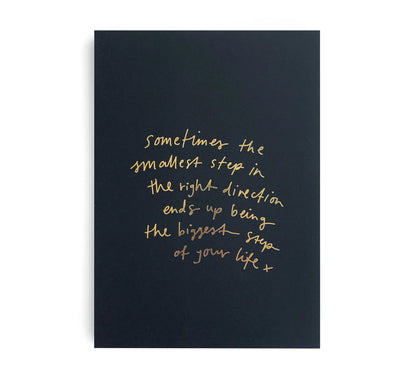 sometimes the
smallest step in
the right direction
ends up being
the biggest step
of your life x